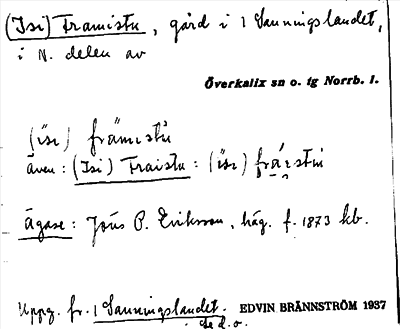 (Isi) Framistu, gård i 1 Sanningslandet,
i N. delen av
Överkalix sn o. tg Norrb. l.
(isi) främistù
även: (Isi) Fraistu: (isi) fraistù
Ägare: Jöns P. Eriksson, häg. f. 1873 kb.
Uppg. fr. 1 Sanningslandet. EDVIN BRÄNNSTRÖM 1937
Se d. o.